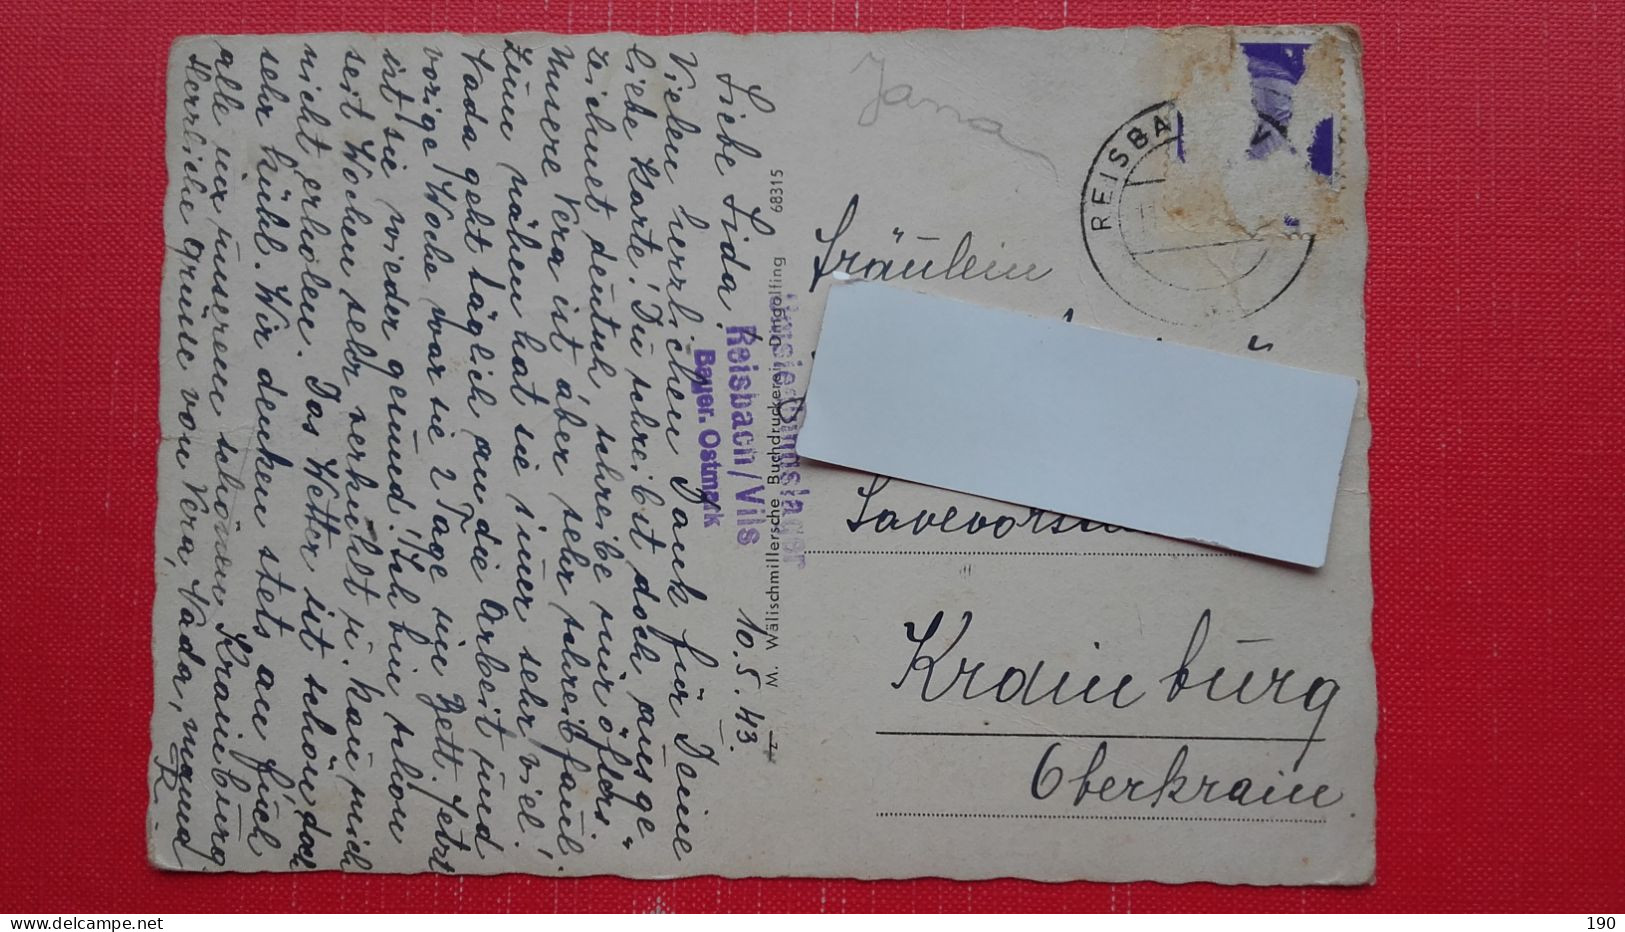 10.5.43.
Liebe Lida!
Vielen herzlichen Dank für Deine
liebe Karte! Du schreibst doch ausge-
zeichnet deutsch, schreibe mir öfters.
Unsere Vera ist aber sehr schreibfaul.
Zum nähen hat sie immer sehr viel!
Vada geht täglich an die Arbeit und
vorige Woche war sie 2 Tage im Bett. Jetzt
ist sie wieder gesund! Ich bin schon
seit Wochen sehr verkühlt u. kau mich
nicht erholen. Das Wetter ist schön, doch
sehr kühl. Wir denken stets an Euch
alle u. unserem schönen Krainburg
Herzliche Grüsse von Vera, Vada, mama
R.
M. Wälischmillersche Buchdruckerei, Dingolfing 68315
Reisbach/Vils
Bayer. Ostmark
Jana
REISBA
Fräulein
Krainburg
Oberkrain
190